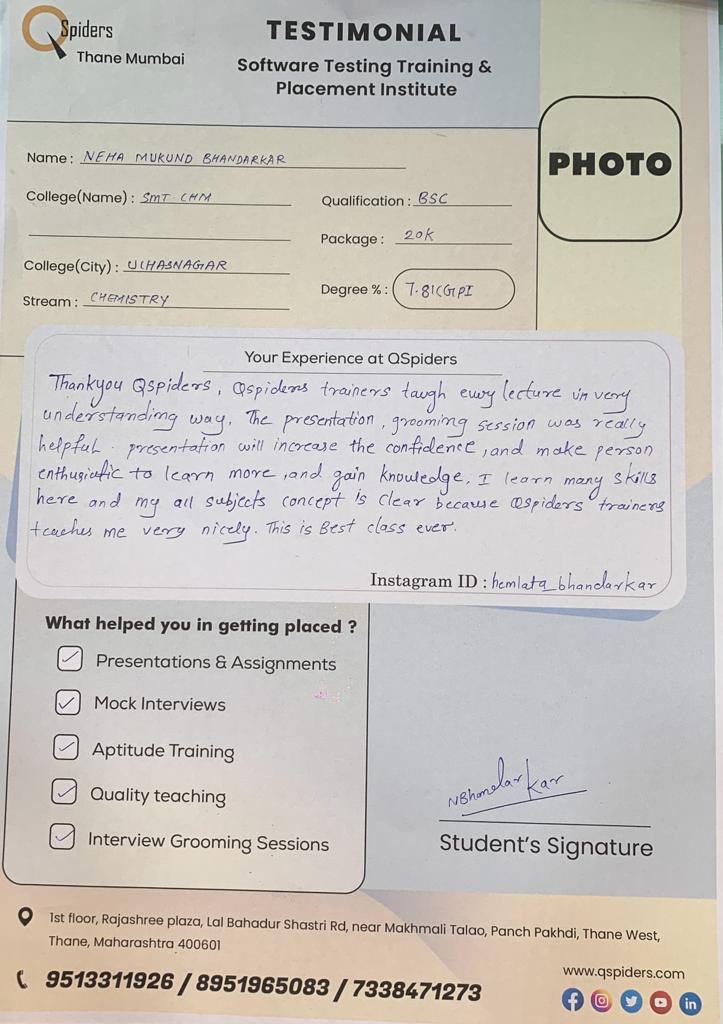 QSpiders
Thane Mumbai
TESTIMONIAL
Software Testing Training &
Placement Institute
PHOTO
Name : NEHA MUKUND BHANDARKAR
College(Name) : SMT CHM
Qualification : BSC
Package : 20K
College(City) : ULHASNAGAR
Stream : CHEMISTRY
Degree % : 7.81CGPI
Your Experience at QSpiders
Thankyou Qspiders, Qspiders trainers taugh every lecture in very
understanding way. The presentation, grooming session was really
helpful. presentation will increase the confidence, and make person
enthusiatic to learn more, and gain knowledge. I learn many skills
here and my all subjects concept is clear because Qspiders trainers
teaches me very nicely. This is Best class ever.
Instagram ID : hemlata_bhandarkar
What helped you in getting placed ?
Presentations & Assignments
Mock Interviews
Aptitude Training
Quality teaching
Interview Grooming Sessions
NBhandarkar
Student's Signature
1st floor, Rajashree plaza, Lal Bahadur Shastri Rd, near Makhmali Talao, Panch Pakhdi, Thane West,
Thane, Maharashtra 400601
9513311926 / 8951965083 / 7338471273
www.qspiders.com